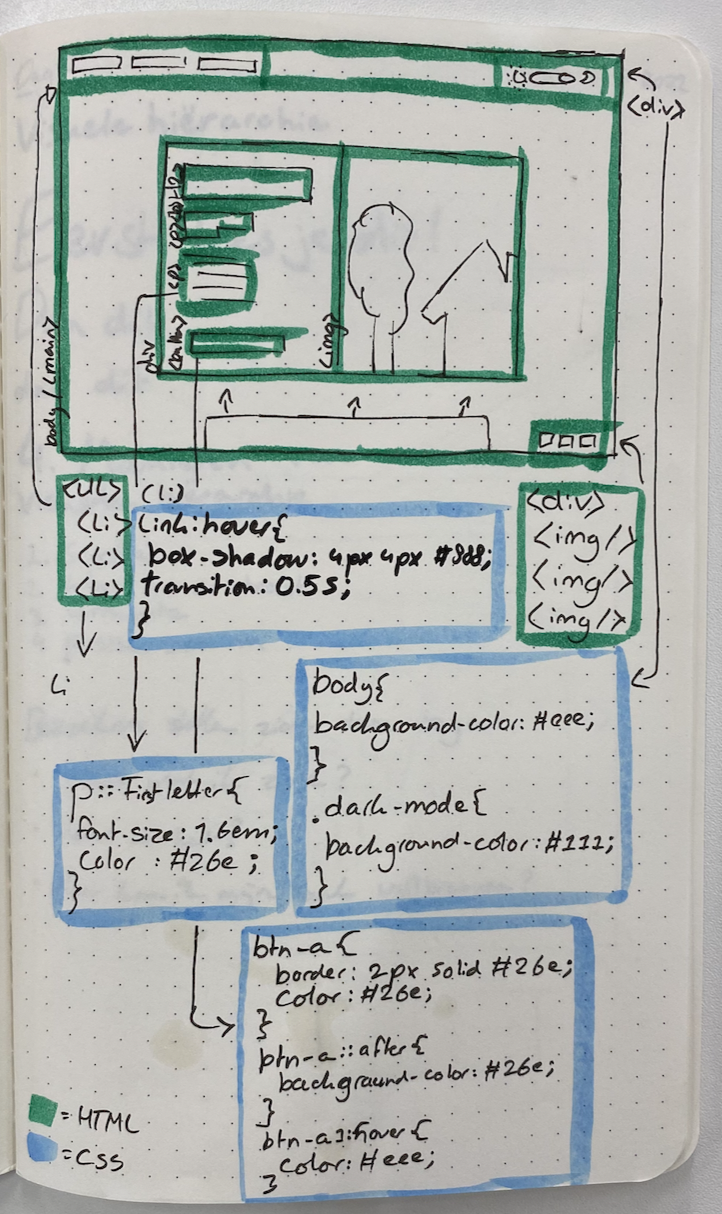 <div>
<p>
<img>
div
body / <main>
<UL>
<Li>
<Li>
<Li>
Li
(Li)
Link:hover{
box-shadow: 4px 4px #888;
transition: 0.5s;
}
<div>
<img/>
<img/>
<img/>
body{
background-color: #eee;
}
.dark-mode{
background-color: #111;
}
p::First letter{
font-size: 1.6em;
Color : #26e ;
}
btn-a{
border: 2px solid #26e;
Color: #26e;
}
btn-a::after{
background-color: #26e;
}
btn-a:hover{
Color: #eee;
}
= HTML
= CSS